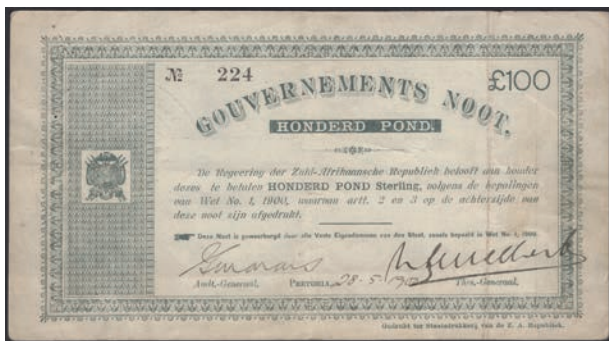 № 224 £100
GOUVERNEMENTS NOOT.
HONDERD POND.
De Regeering der Zuid-Afrikaansche Republiek belooft aan houder
dezes te betalen HONDERD POND Sterling, volgens de bepalingen
van Wet No. 1, 1900, waarvan artt. 2 en 3 op de achterzijde van
deze noot zijn afgedrukt.
Deze Noot is gewaarborgd door alle Vaste Eigendommen van den Staat, zooals bepaald in Wet No. 1, 1900.
Audt.-Generaal. PRETORIA, 28-5-1900 Thes.-Generaal.
Gedrukt ter Staatsdrukkerij van de Z. A. Republiek.